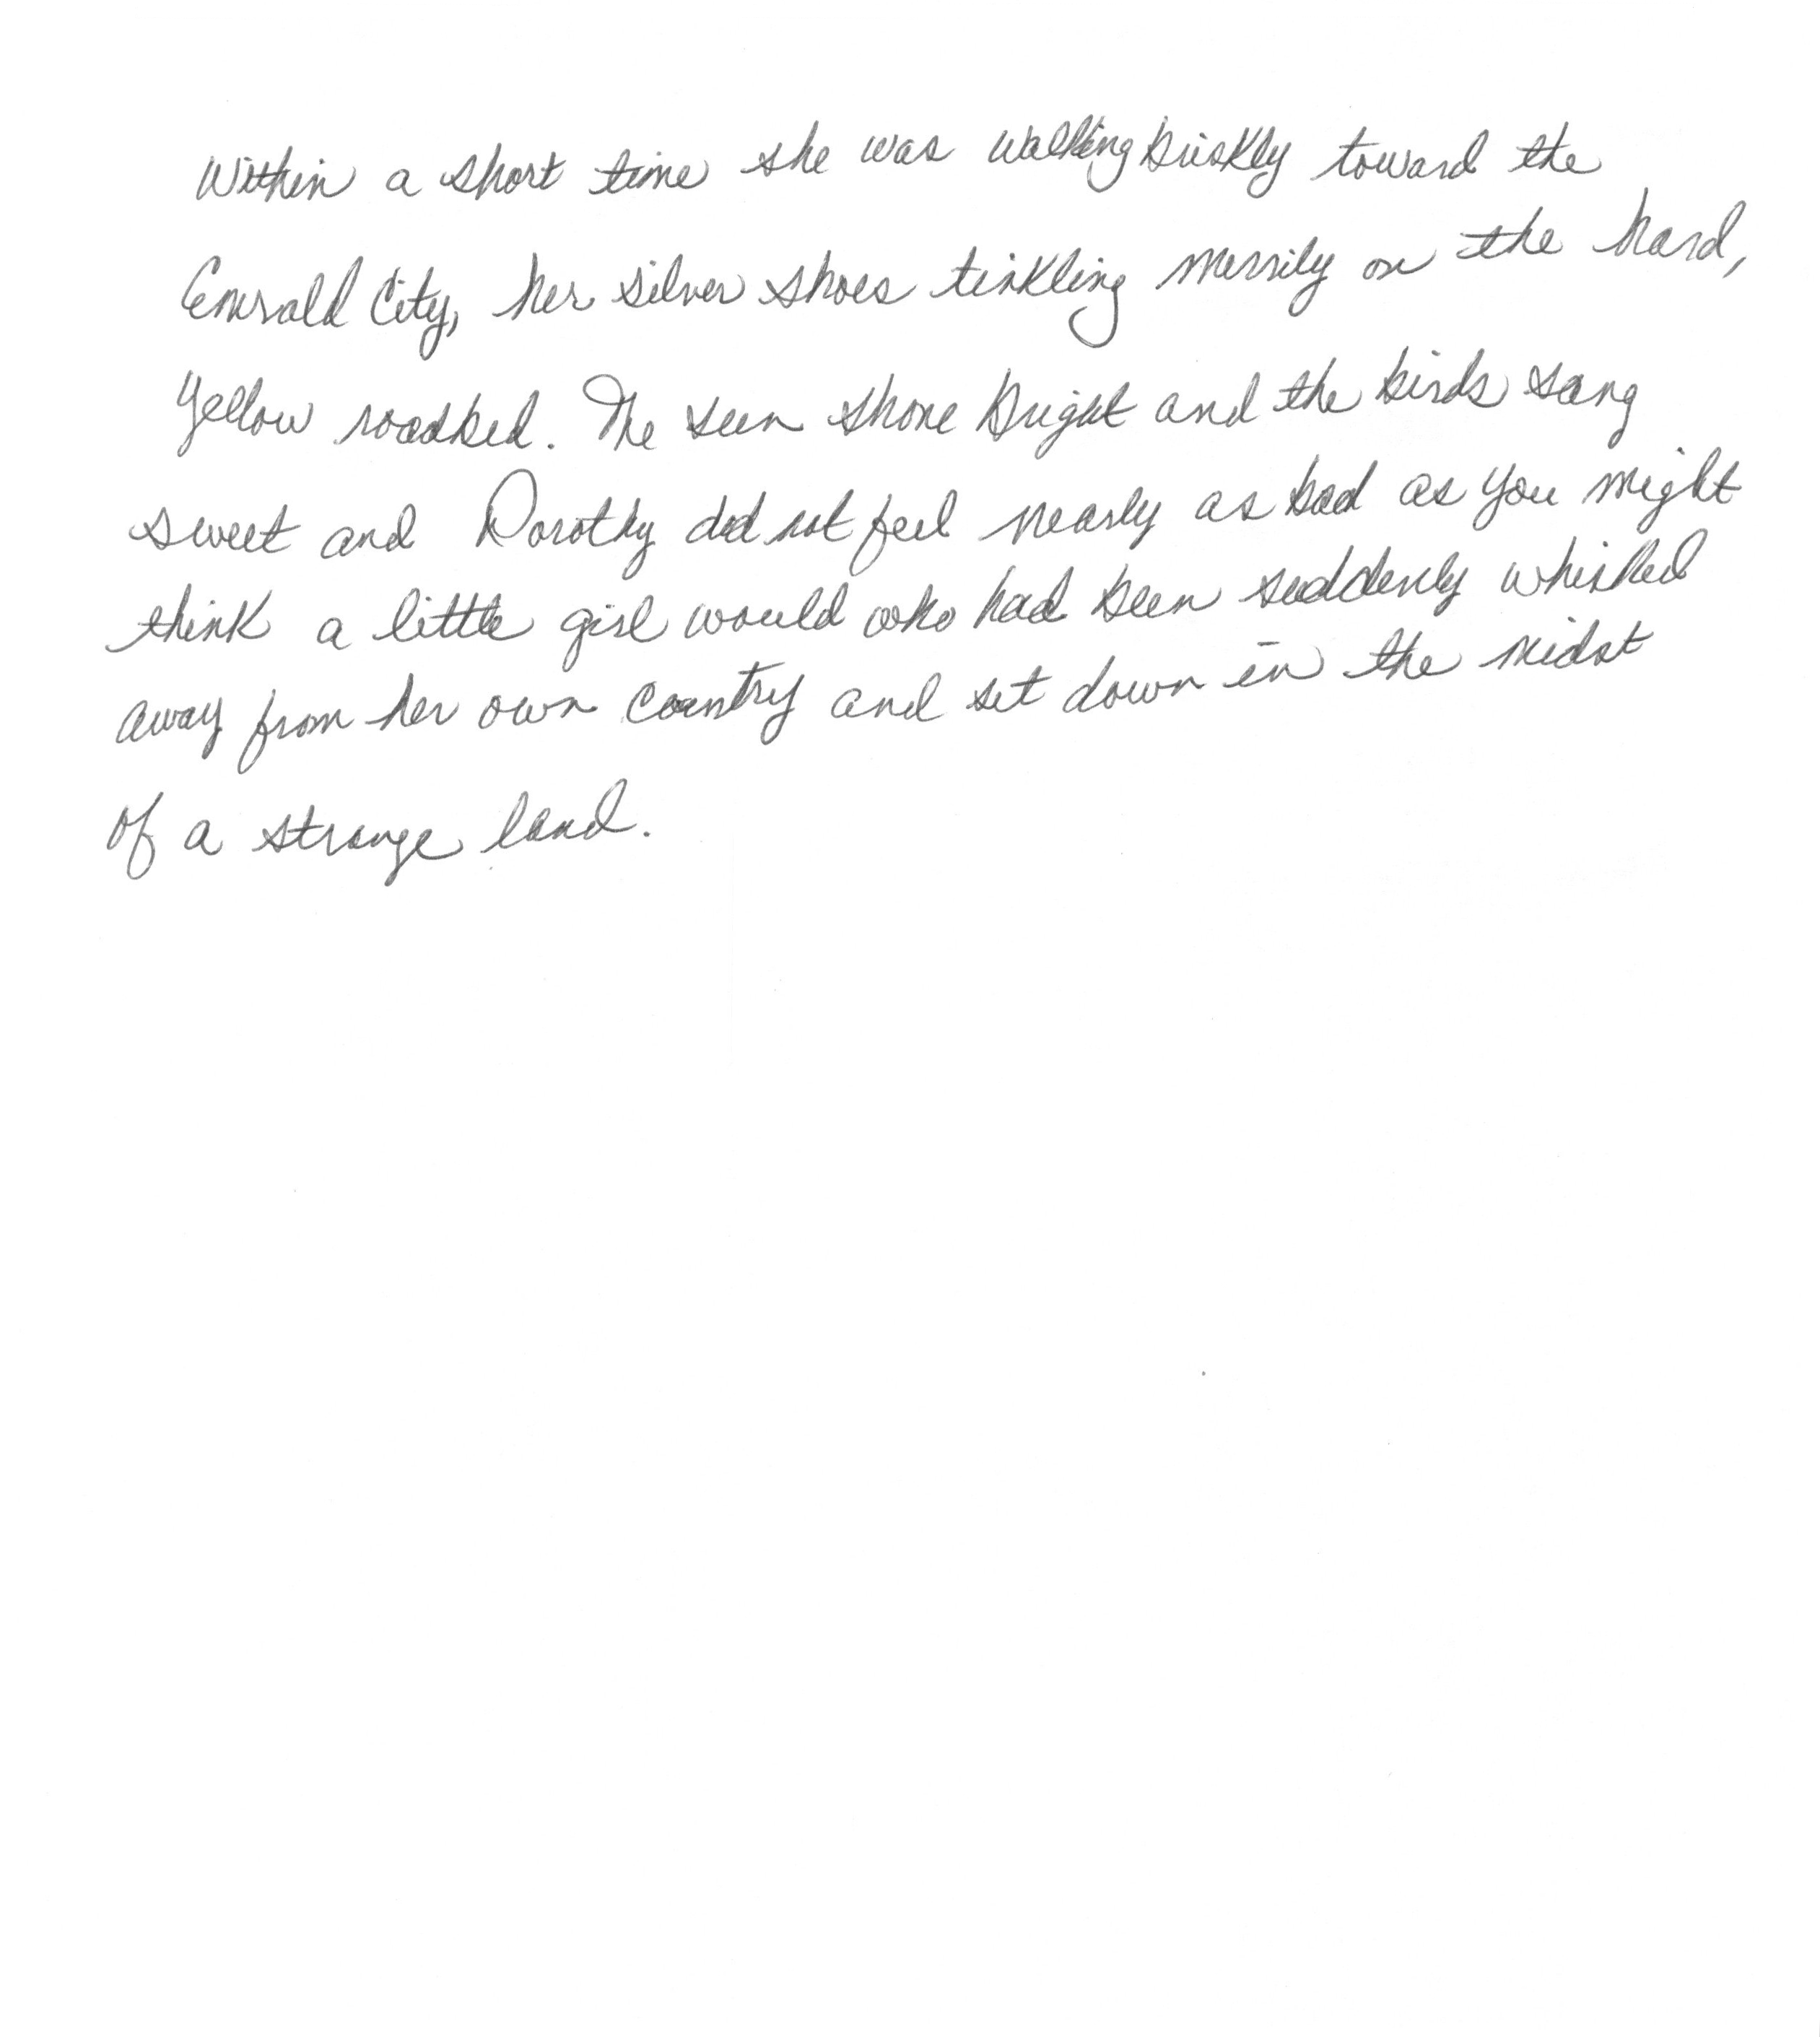 Within a short time she was walking briskly toward the
Emerald City, her silver shoes tinkling merrily on the hard,
yellow roadbed. The sun shone bright and the birds sang
sweet and Dorothy did not feel nearly as bad as you might
think a little girl would who had been suddenly whisked
away from her own country and set down in the midst
of a strange land.